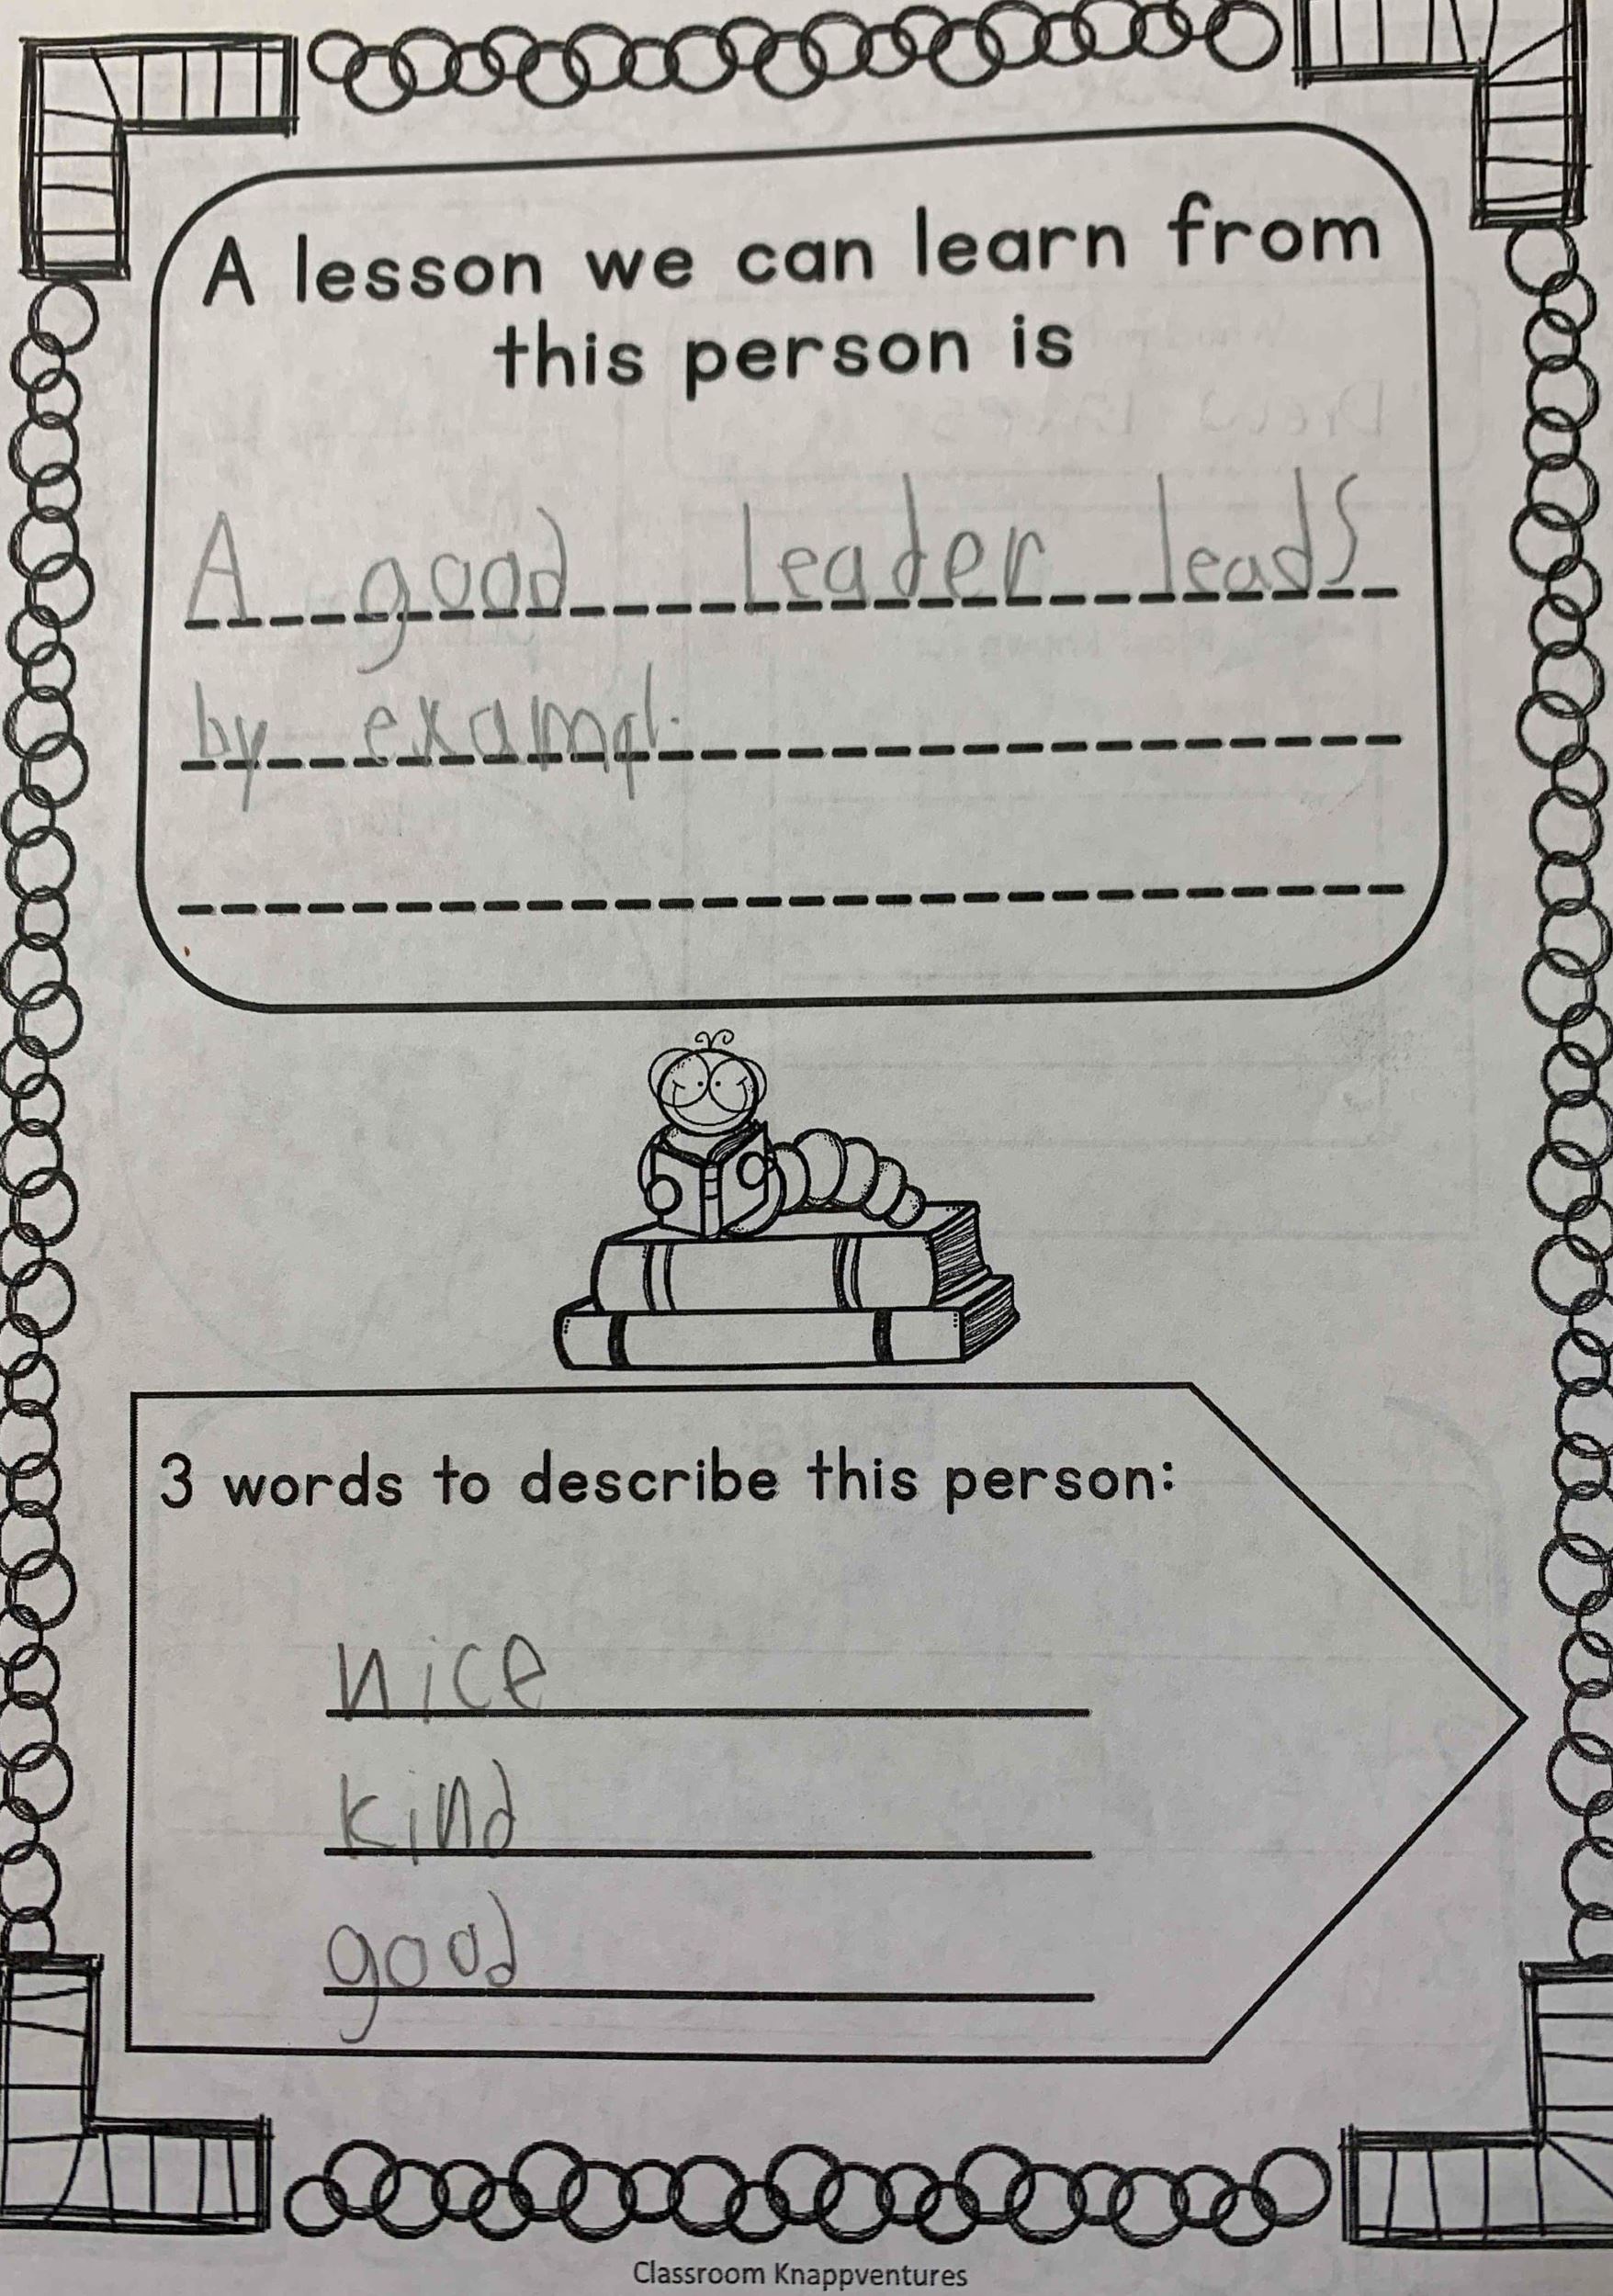 A lesson we can learn from
this person is
A good leader leads
by exampl.
3 words to describe this person:
nice
kind
good
Classroom Knappventures